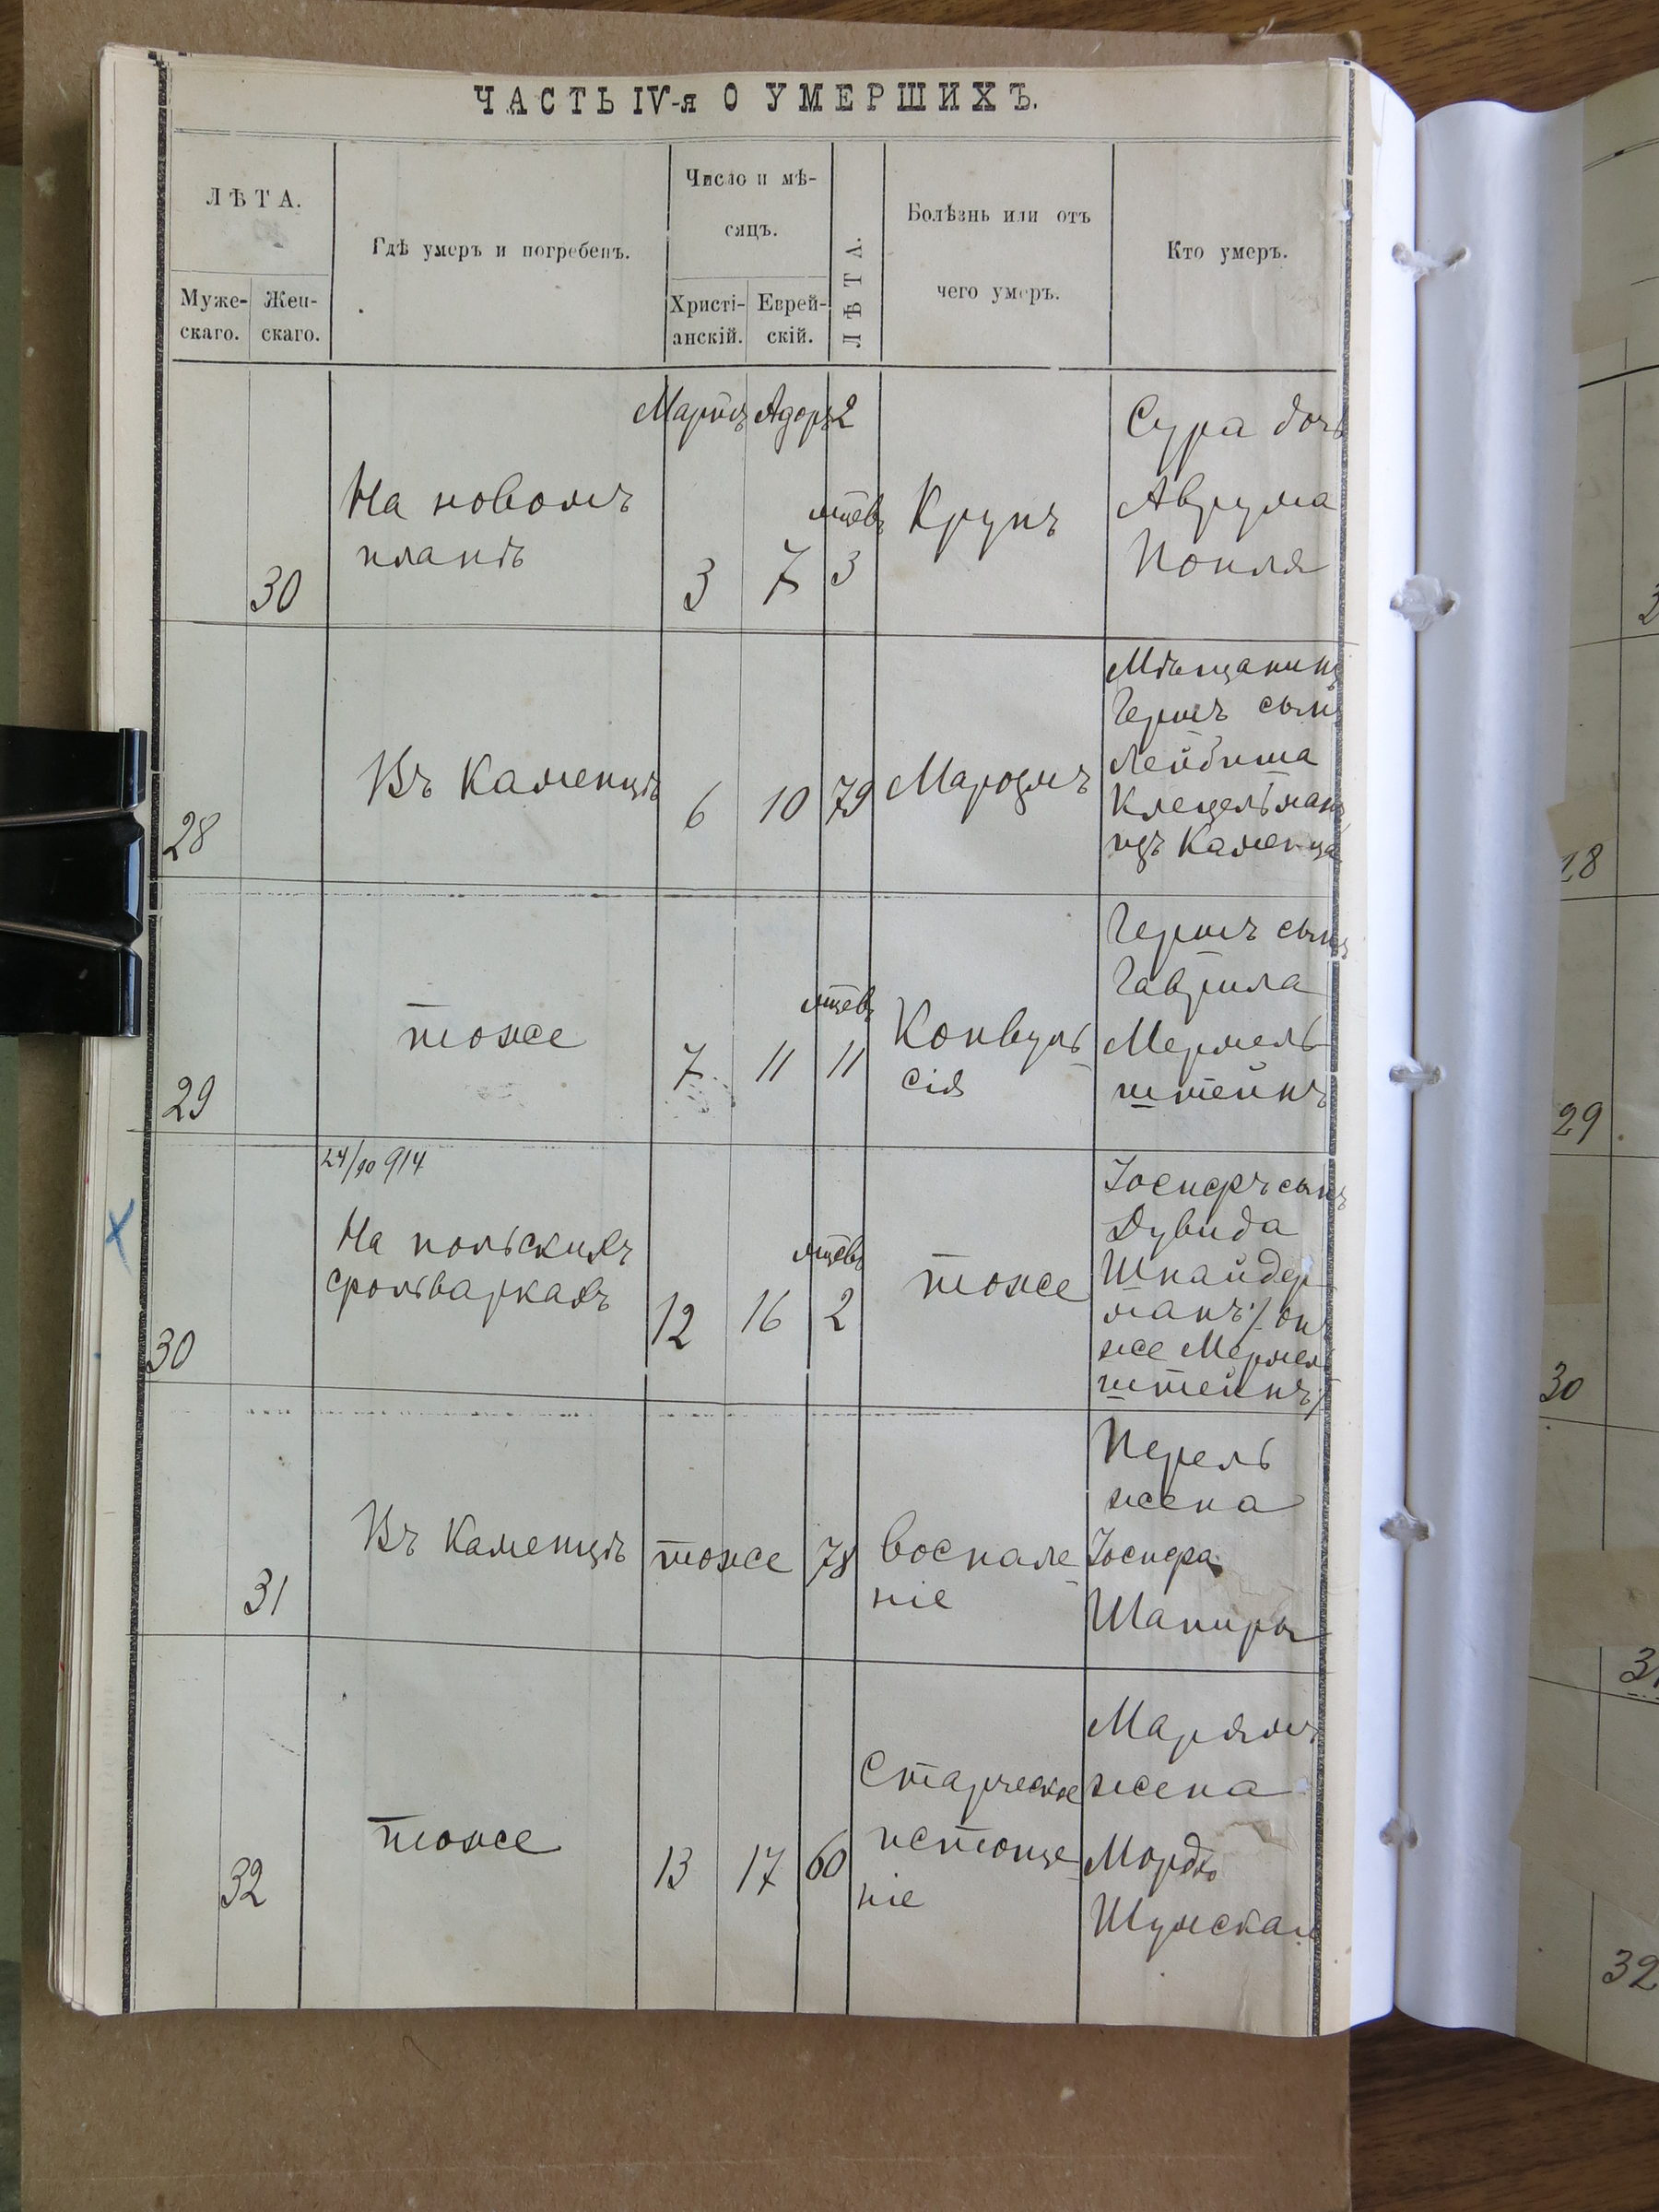 ЧАСТЬ IV-я О УМЕРШИХЪ.
ЛѢТА.
Муже-
скаго.
Жен-
скаго.
Гдѣ умеръ и погребенъ.
Число и мѣ-
сяцъ.
Христі-
анскій.
Еврей-
скій.
ЛѢТА.
Болѣзнь или отъ
чего умеръ.
Кто умеръ.
30
На новомъ
планѣ
Мартъ
3
Адоръ
7
2
мцевъ
3
Крупъ
Сура дочь
Аврума
28
Въ Каменцѣ
6
10
79
Маразмъ
Мѣщанинъ
Гершъ сынъ
Лейбиша
изъ Каменца
29
тоже
7
11
мцевъ
11
Конвуль
сія
Гершъ сынъ
Гаврила
Мермель
штейнъ
30
24/10 914
На польскихъ
фольваркахъ
12
16
мцевъ
2
тоже
Іосифъ сынъ
Дувида
Шнайдер
манъ /он
же Мермел
штейнъ/
31
Въ Каменцѣ
тоже
78
воспале
ніе
Перель
жена
Іосифа
Шапиры
32
тоже
13
17
60
Старческое
истоще
ніе
Марямъ
жена
Мордко
Шумская
3
28
29
30
31
32